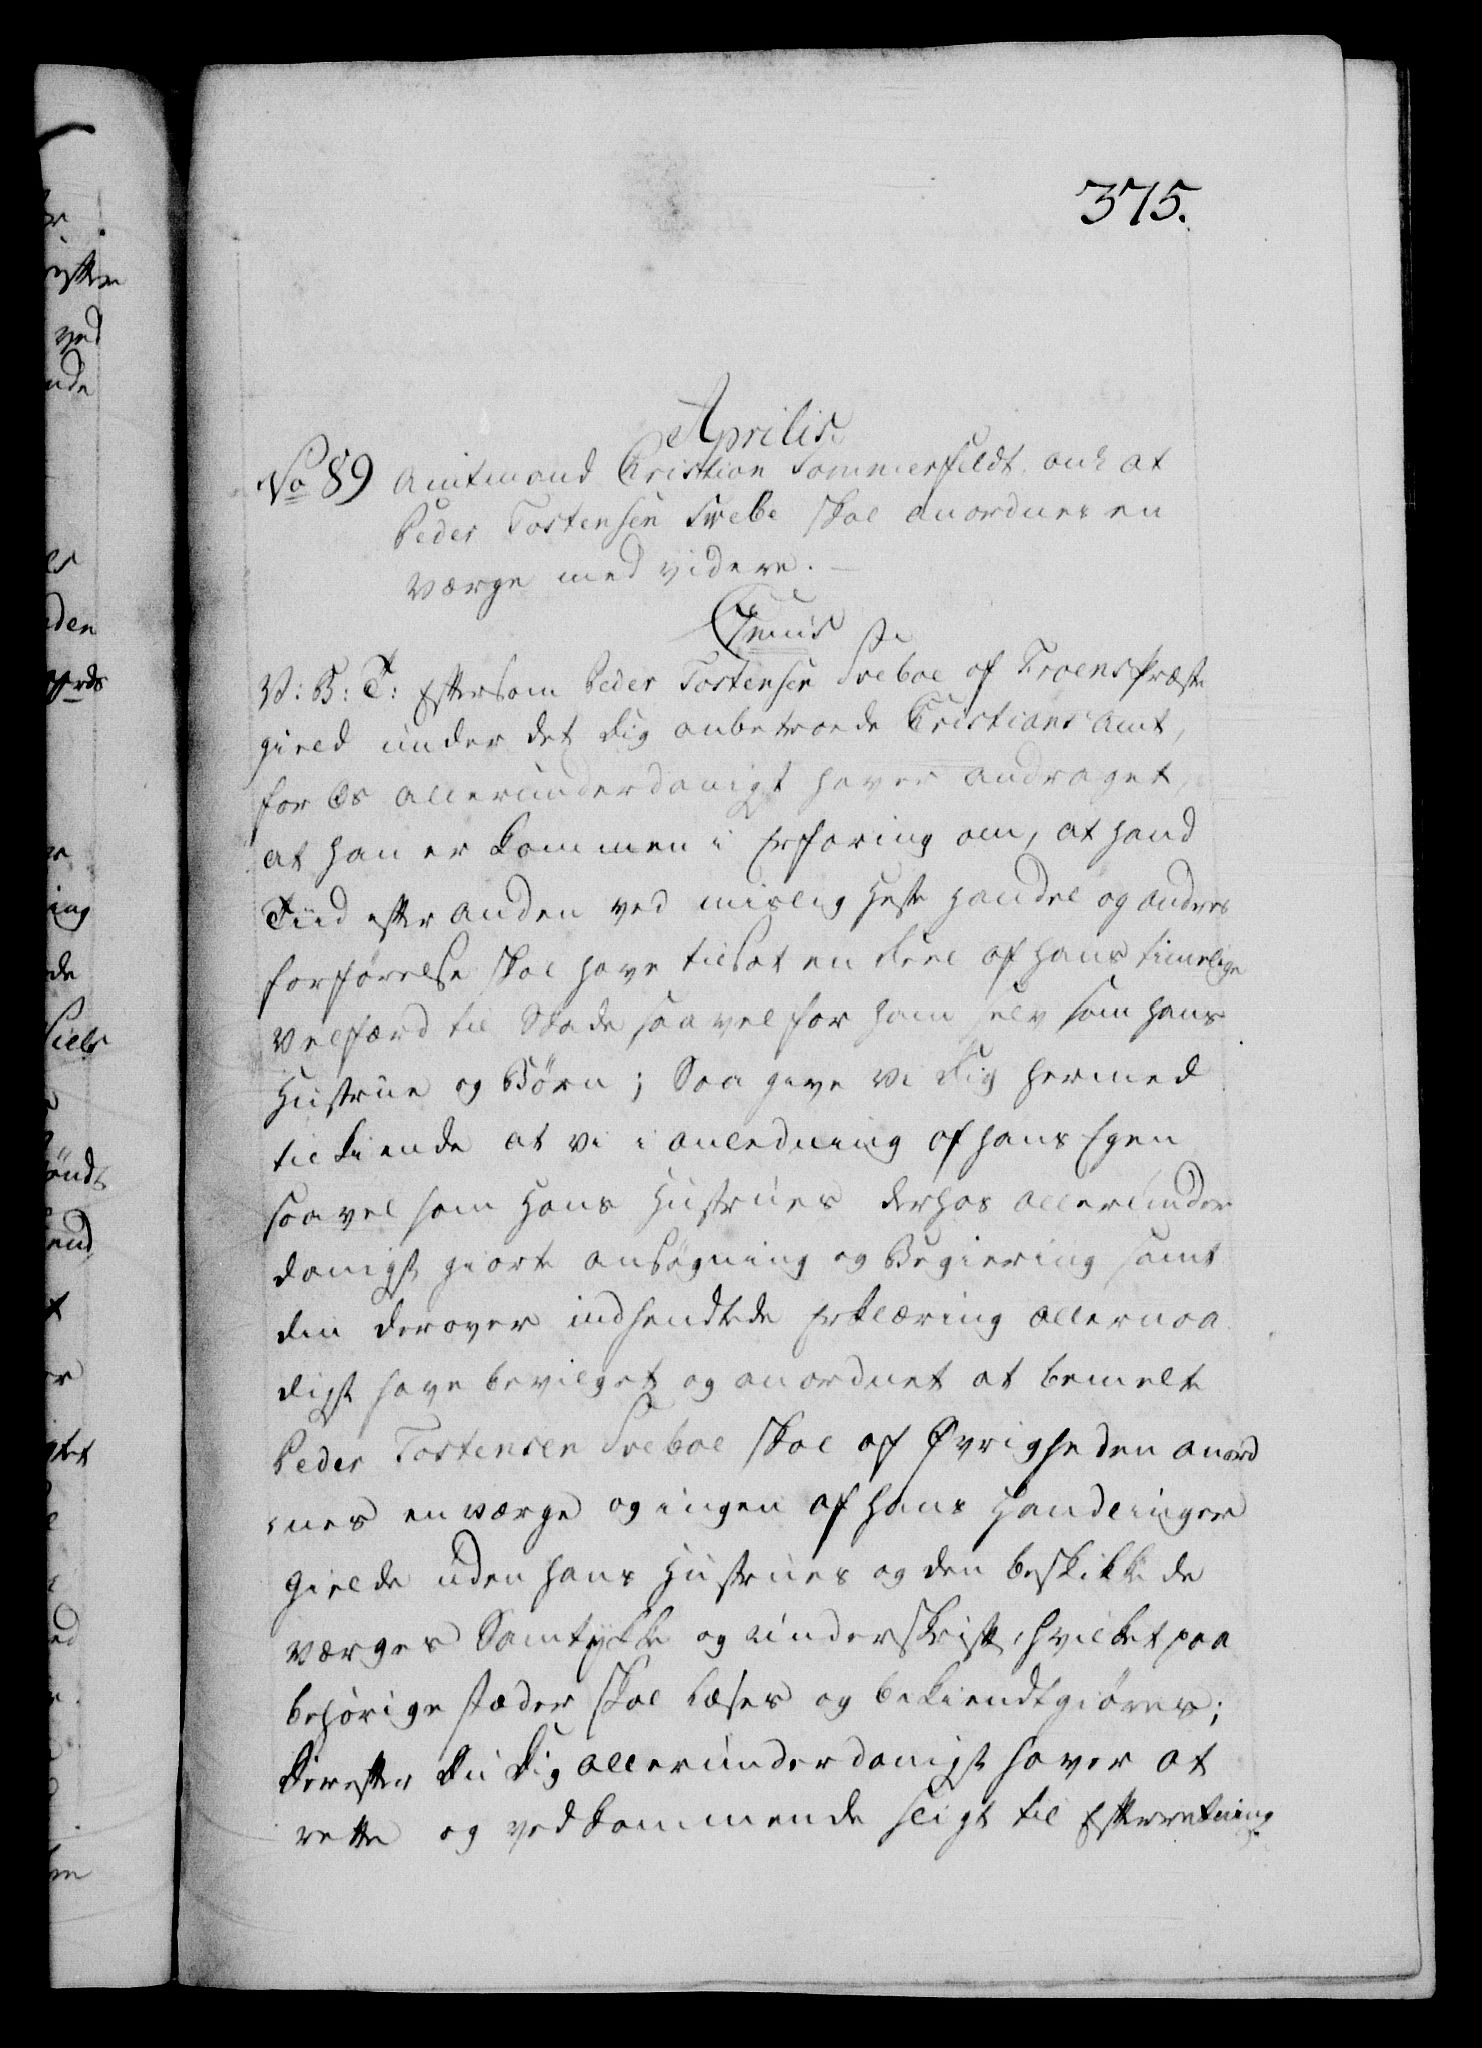 375.
Aprilis.
No 89 Amtmand Cristian Sommerfeldt. anl at
Peder Tostensen Svebe skal anordnes en
værge med videre.
V: B: T: Eftersom Peder Tostensen Sveboe af Froens Præste
gield under det dig anbetroede Cristians Amt,
for Os allerunderdanigst haver andraget,
at han er kommen i Erfaring om, at hand
Tiid efter anden ved mislig Heste Handel og andres
forførelse skal have tilsat en deel af hans timelige
velfærd til Skade saavel for ham selv som hans
Hustrue og Børn; Saa give vi dig hermed
tilkiende at vi i anledning af hans Egen
saavel som Hans Hustrues derhos allerunder
danigst giorte ansøgning og Begiering samt
den derover indsendtede Erklæring allernaa
digst have bevilget og anordnet at bemelte
Peder Tostensen Sveboe skal af Øvrigheden anord
nes en værge og ingen af hans Handlinger
gielde uden hans Hustrues og den beskikkede
værges Samtykke og underskrift, hvilket paa
behørige stæder skal læses og bekiendtgiøres;
Derefter du dig allerunderdanigst haver at
rette og vedkommende sligt til Efterretning